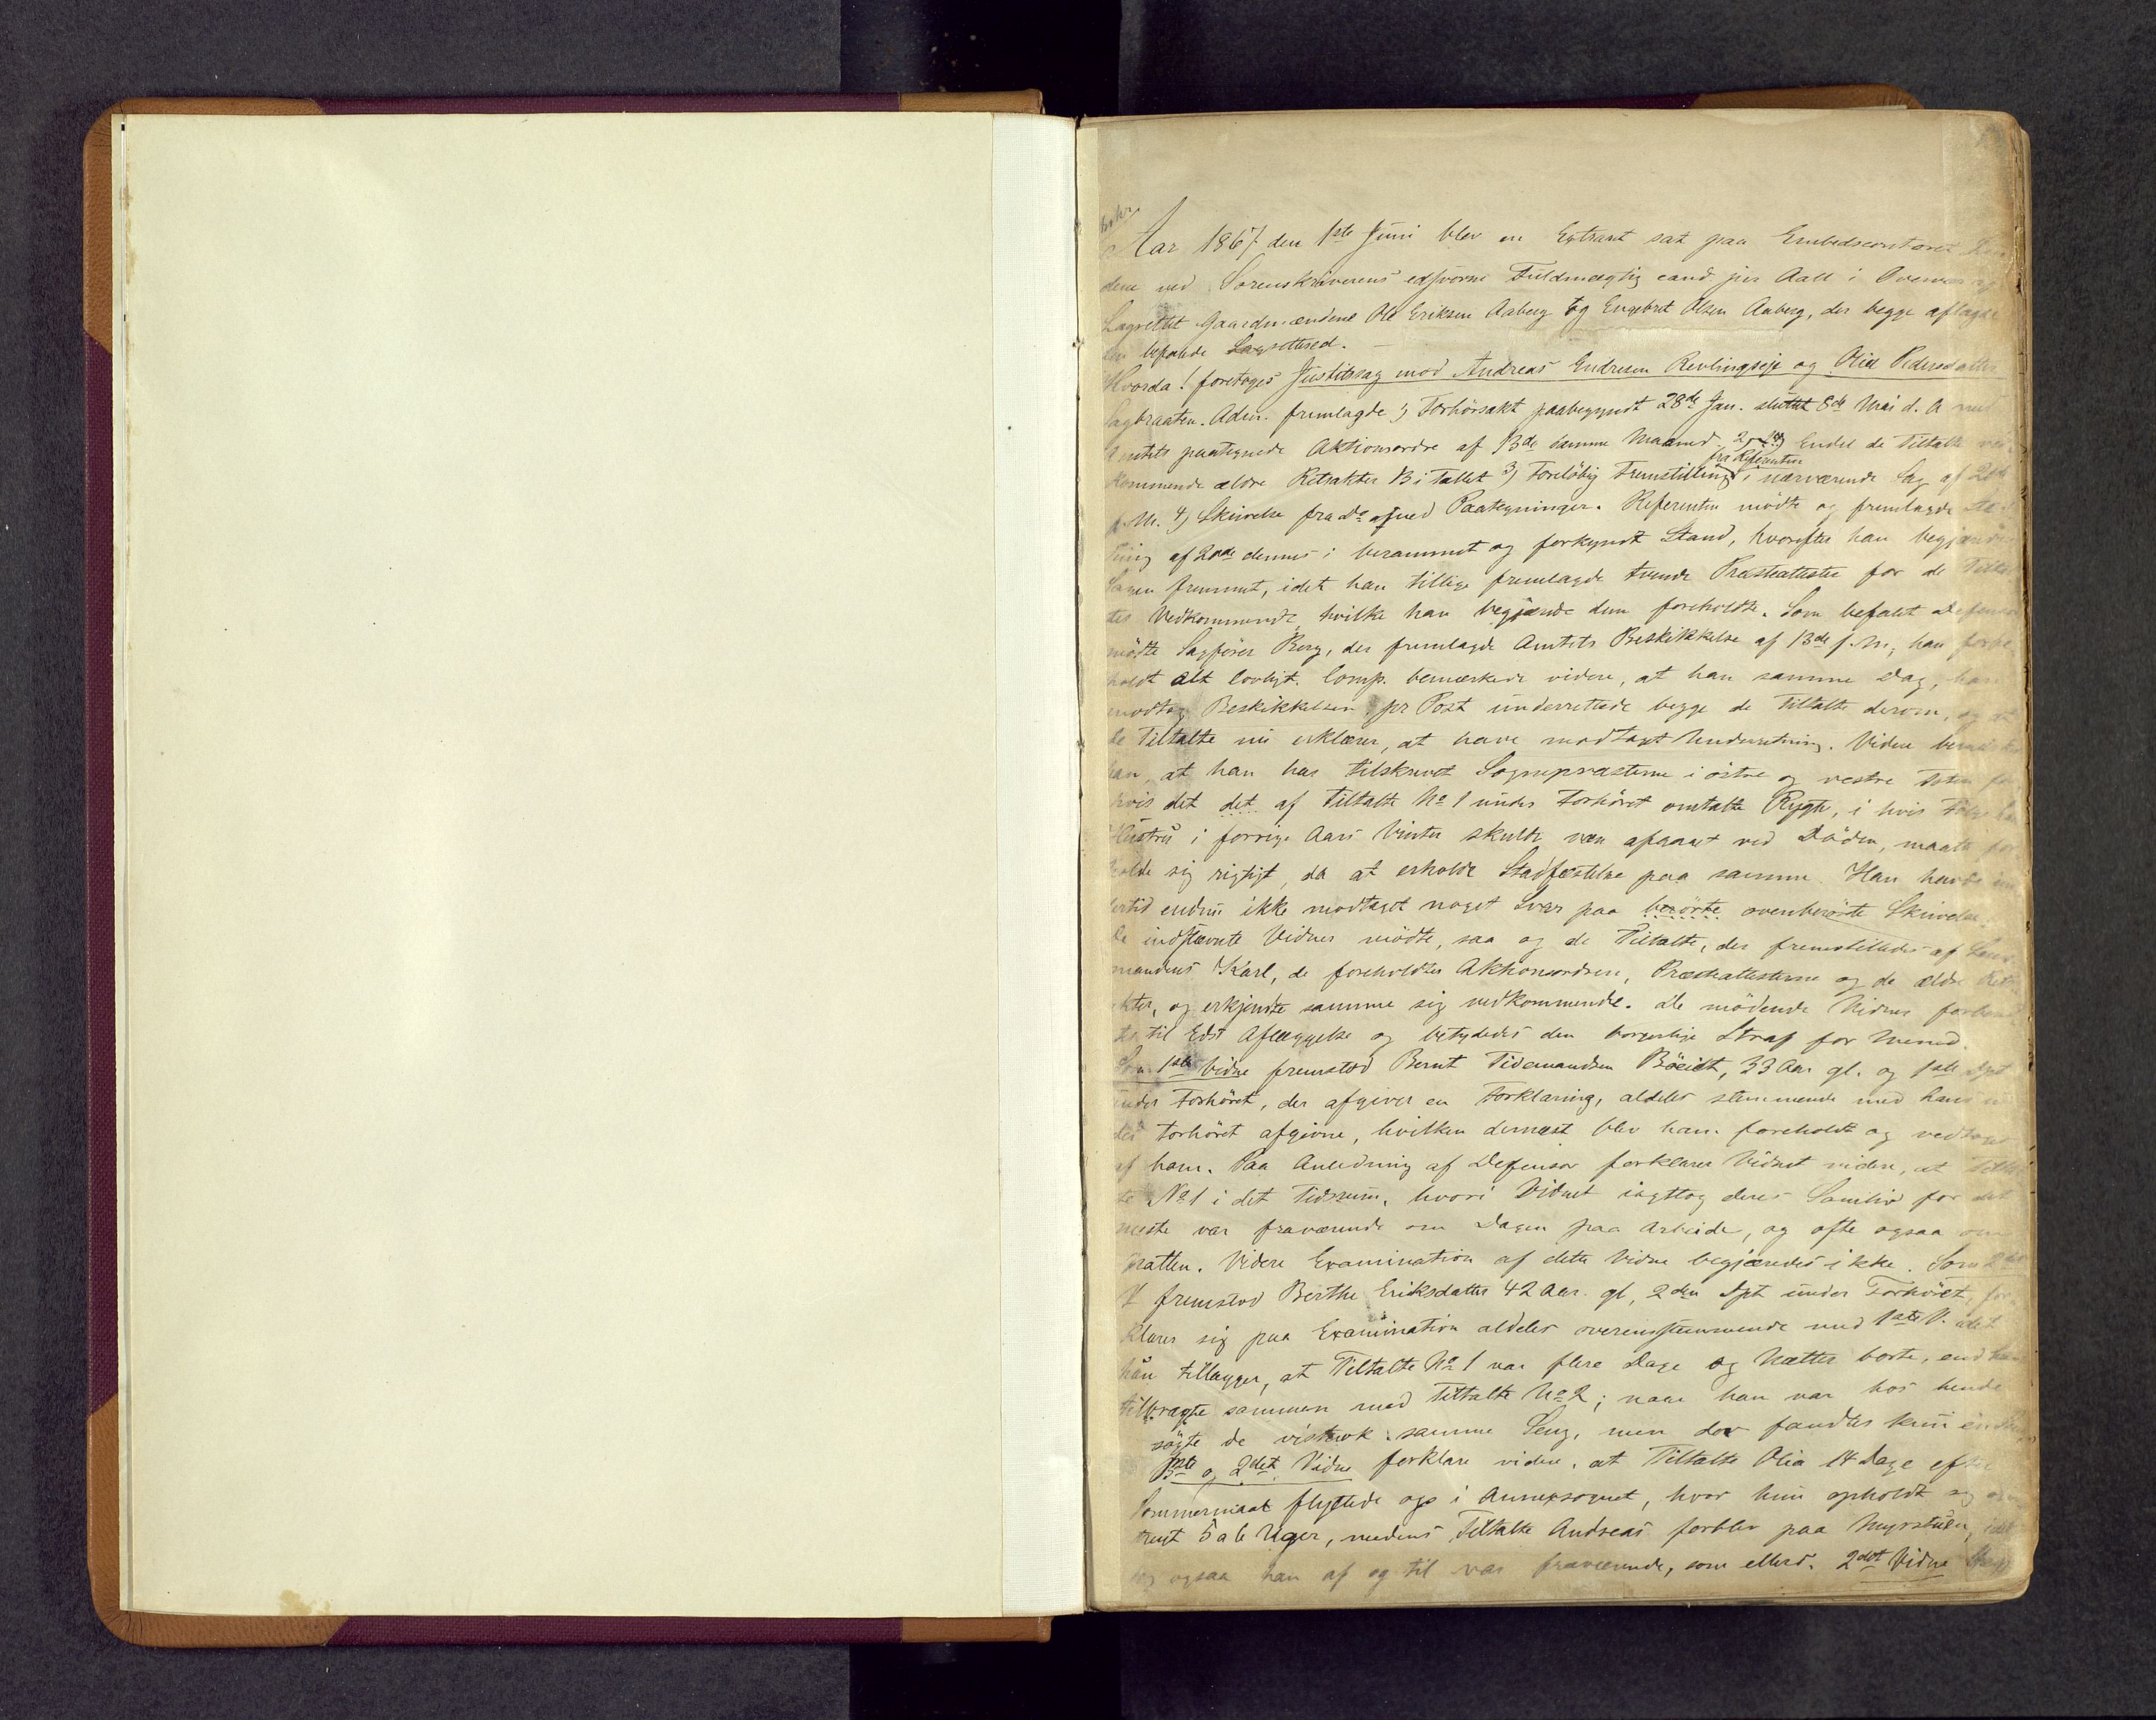 Aar 1867 den 1ste Juni blev en Extraret sat paa Embedscontoret
dene ved Sorenskriverens edsvorne Fuldmægtig cand jur Aall i Overvær af
Lagrettet Gaardmændene Ole Eriksen Aaberg og Engebret Olsen Aaberg, der begge aflagde
den befalede Lagrettesed. —
Hvorda! foretoges Justitssag mod Andreas Endresen Revlingseje og Olia Pedersdatter
Sagbraaten. Adm. fremlagde 1) Forhörsakt paabegyndt 28de Jan. sluttet 8de Mai d. A med
Amtets paategnede Aktionsordre af 13de samme Maaned, 2) Endel de Tiltalte ved-
kommende ældre Retsakter 13 i Tallet 3) Foreløbig Fremstilling fra Referenten i nærværende Sag af
f. M. 4) Skrivelse fra Do med Paategninger. Referenten mödte og fremlagde
ning af 20de dennes i berammet og forkyndt Stand, hvorefter han begjærede
Sagen fremmet, idet han tillige fremlagde tvende Præsteattester for de Tiltal
tes Vedkommende, hvilke han begjærede dem foreholdte. Som befalet Defensor
mödte Sagförer Berg, der fremlagde Amtets Beskikkelse af 13de f. M., han forbe
holdt alt lovligt. Comp. bemærkede videre, at han samme Dag, han
modtog Beskikkelsen pr Post underrettede begge de Tiltalte derom, og at
de Tiltalte nu erklærer, at have modtaget Underretning. Videre bemærkede
han, at han har tilskrevet Sognepræsterne i östre og vestre Toten for
hvis det det af Tiltalte No 1 under Forhöret omtalte Rygte, i hvis Følge hans
Hustru i forrige Aars Vinter skulde være afgaaet ved Döden, maatte for
holde sig rigtigt, da at erholde Stadfæstelse paa samme. Han havde im
lertid endnu ikke modtaget noget Svar paa berörte ovenberörte Skrivelse.
De indstævnte Vidner mödte, saa og de Tiltalte, der fremstilledes af Lens-
mandens Karl, de foreholdtes Aktionsordren, Præsteattesterne og de ældre Rets
akter, og erkjendte samme sig vedkommende. De mödende Vidner forbered
tes til Eds Aflæggelse og betydedes den borgerlige Straf for Mened.
Som 1ste Vidne fremstod Bernt Tidemandsen Böeidt, 33 Aar gl. og 1ste Dpt
under Forhöret, der afgiver en Forklaring, aldeles stemmende med hans un
der Forhöret afgivne, hvilken dernæst blev ham foreholdt og vedtaget
af ham. Paa Anledning af Defensor forklarer Vidnet videre, at Tiltal
te No 1 i det Tidsrum, hvori Vidnet iagttog deres Samliv for det
meste var fraværende om Dagen paa Arbeide, og ofte ogsaa om
Natten. Videre Examination af dette Vidne begjæredes ikke. Som 2det
V fremstod Berthe Eriksdatter 42 Aar gl, 2den Dpt under Forhöret, for
klarer sig paa Examination aldeles overensstemmende med 1ste V. idet
hun tillægger, at Tiltalte No 1 var flere Dage og Nætter borte, end han
tilbragte sammen med Tiltalte No 2; naar han var hos hende
søgte de vistnok samme Seng, men der fandtes kun én
1ste og 2det Vidne forklare videre, at Tiltalte Olia 14 Dage efter
Sommermaal flyttede op i Annexsognet, hvor hun opholdt sig om
trent 5 a 6 Uger, medens Tiltalte Andreas forblev paa Myrstuen, idet
dog ogsaa han af og til var fraværende, som ellers. 2det Vidne